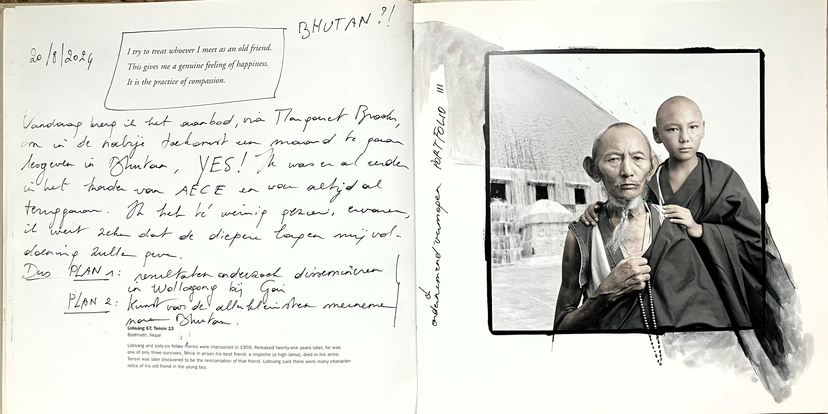 BHUTAN?!
20/8/2024
I try to treat whoever I meet as an old friend.
This gives me a genuine feeling of happiness.
It is the practice of compassion.
Vandaag kreeg ik het aanbod, via Margaret Brooks,
om in de nabije toekomst een maand te gaan
lesgeven in Bhutan, YES! Ik was er al eerder
in het kader van AECE en wou altijd al
teruggaan. Ik heb té weinig gezien, ervaren,
ik weet zeker dat de diepere lagen mij vol-
doening zullen geven.
Dus PLAN 1: resultaten onderzoek dissemineren
in Wollogong bij Gai
PLAN 2: Kunst van de allerkleinsten meenemen
naar Bhutan.
Lobsang 67, Tensin 13
Bodhnath, Nepal
Lobsang and sixty-six fellow monks were imprisoned in 1959. Released twenty-one years later, he was
one of only three survivors. While in prison his best friend, a rinpoche (a high lama), died in his arms.
Tensin was later discovered to be the reincarnation of that friend. Lobsang said there were many character-
istics of his old friend in the young boy.
PORTFOLIO III